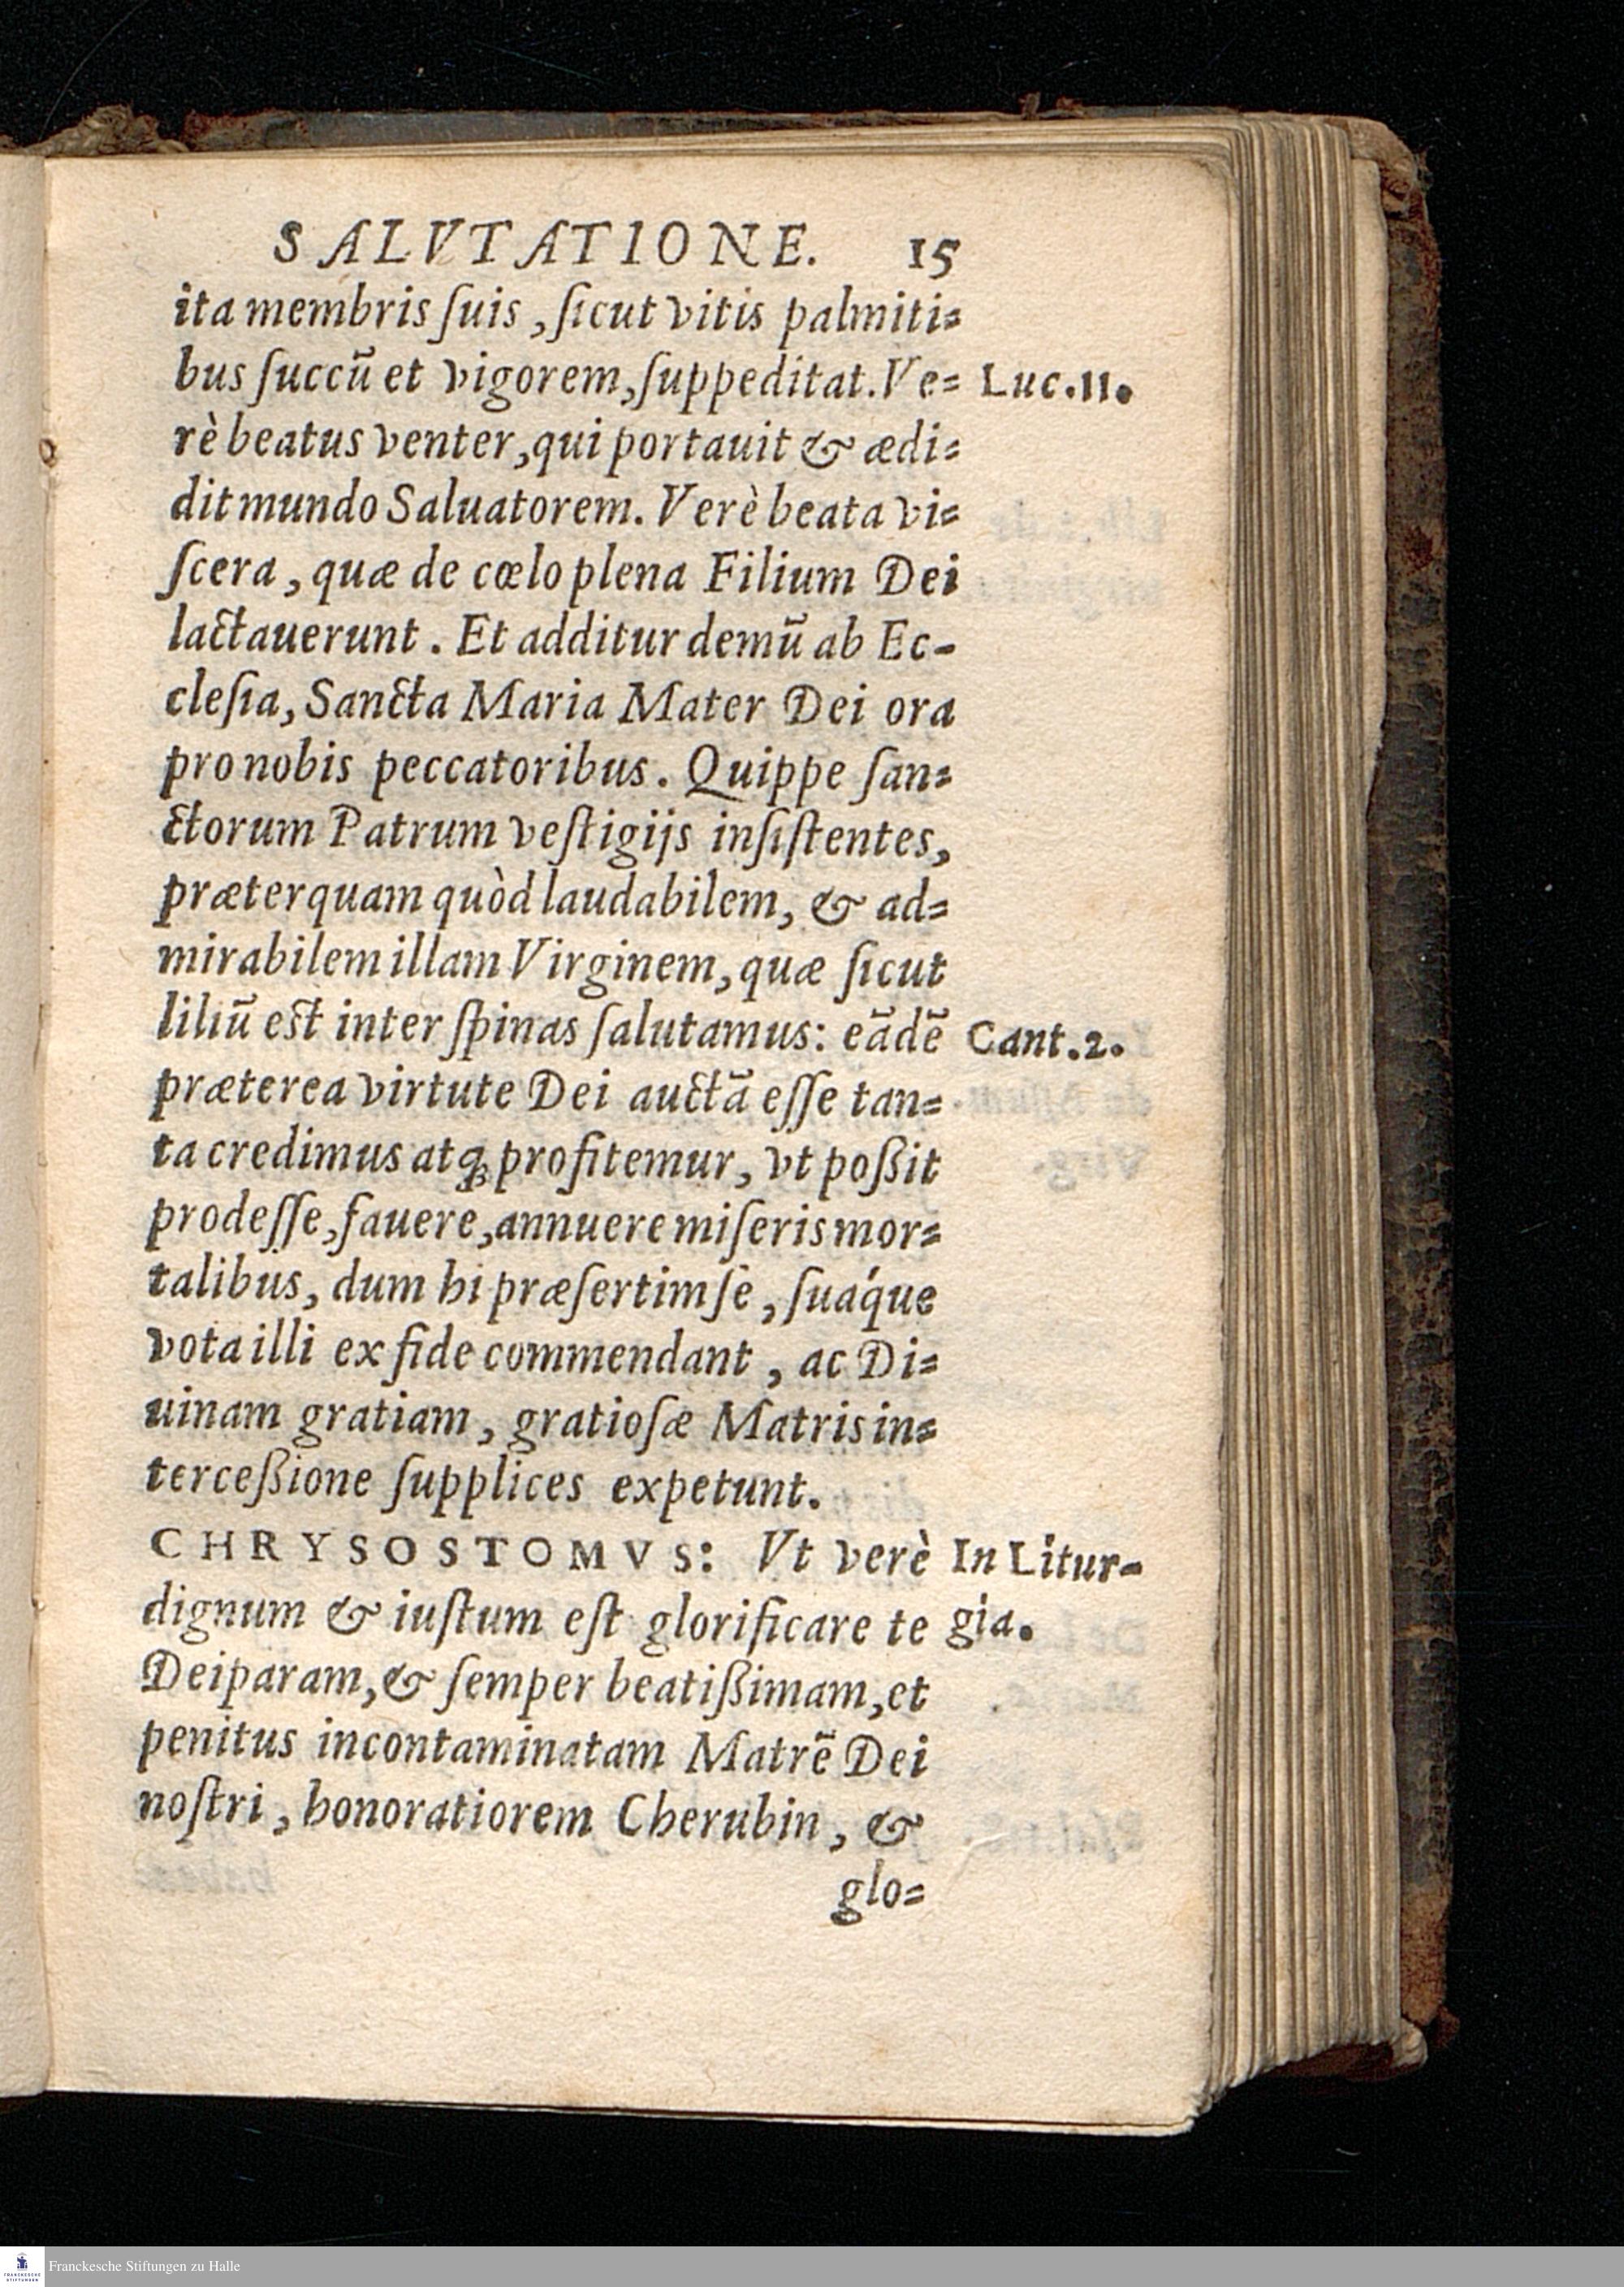 SALVTATIONE. 15
ita membris ſuis, ſicut vitis palmiti=
bus ſuccū et vigorem, ſuppeditat. Ve= Luc.11.
rè beatus venter, qui portauit & ædi=
dit mundo Saluatorem. Verè beata vi=
ſcera, quæ de cœlo plena Filium Dei
lactauerunt. Et additur demū ab Ec-
cleſia, Sancta Maria Mater Dei ora
pro nobis peccatoribus. Quippe ſan=
ctorum Patrum veſtigijs inſiſtentes,
præterquam quòd laudabilem, & ad=
mirabilem illam Virginem, quæ ſicut
liliū est inter ſpinas ſalutamus: eādē Cant.2.
præterea virtute Dei auctā eſſe tan=
ta credimus atqꝫ profitemur, vt poßit
prodeſſe, fauere, annuere miſeris mor=
talibus, dum hi præſertim ſe, ſuáque
vota illi ex fide commendant, ac Di=
uinam gratiam, gratioſæ Matris in=
terceßione ſupplices expetunt.
CHRYSOSTOMVS: Vt verè In Litur-
dignum & iuſtum eſt glorificare te gia.
Deiparam, & ſemper beatißimam, et
penitus incontaminatam Matrē Dei
noſtri, honoratiorem Cherubin, &
glo=
Franckesche Stiftungen zu Halle